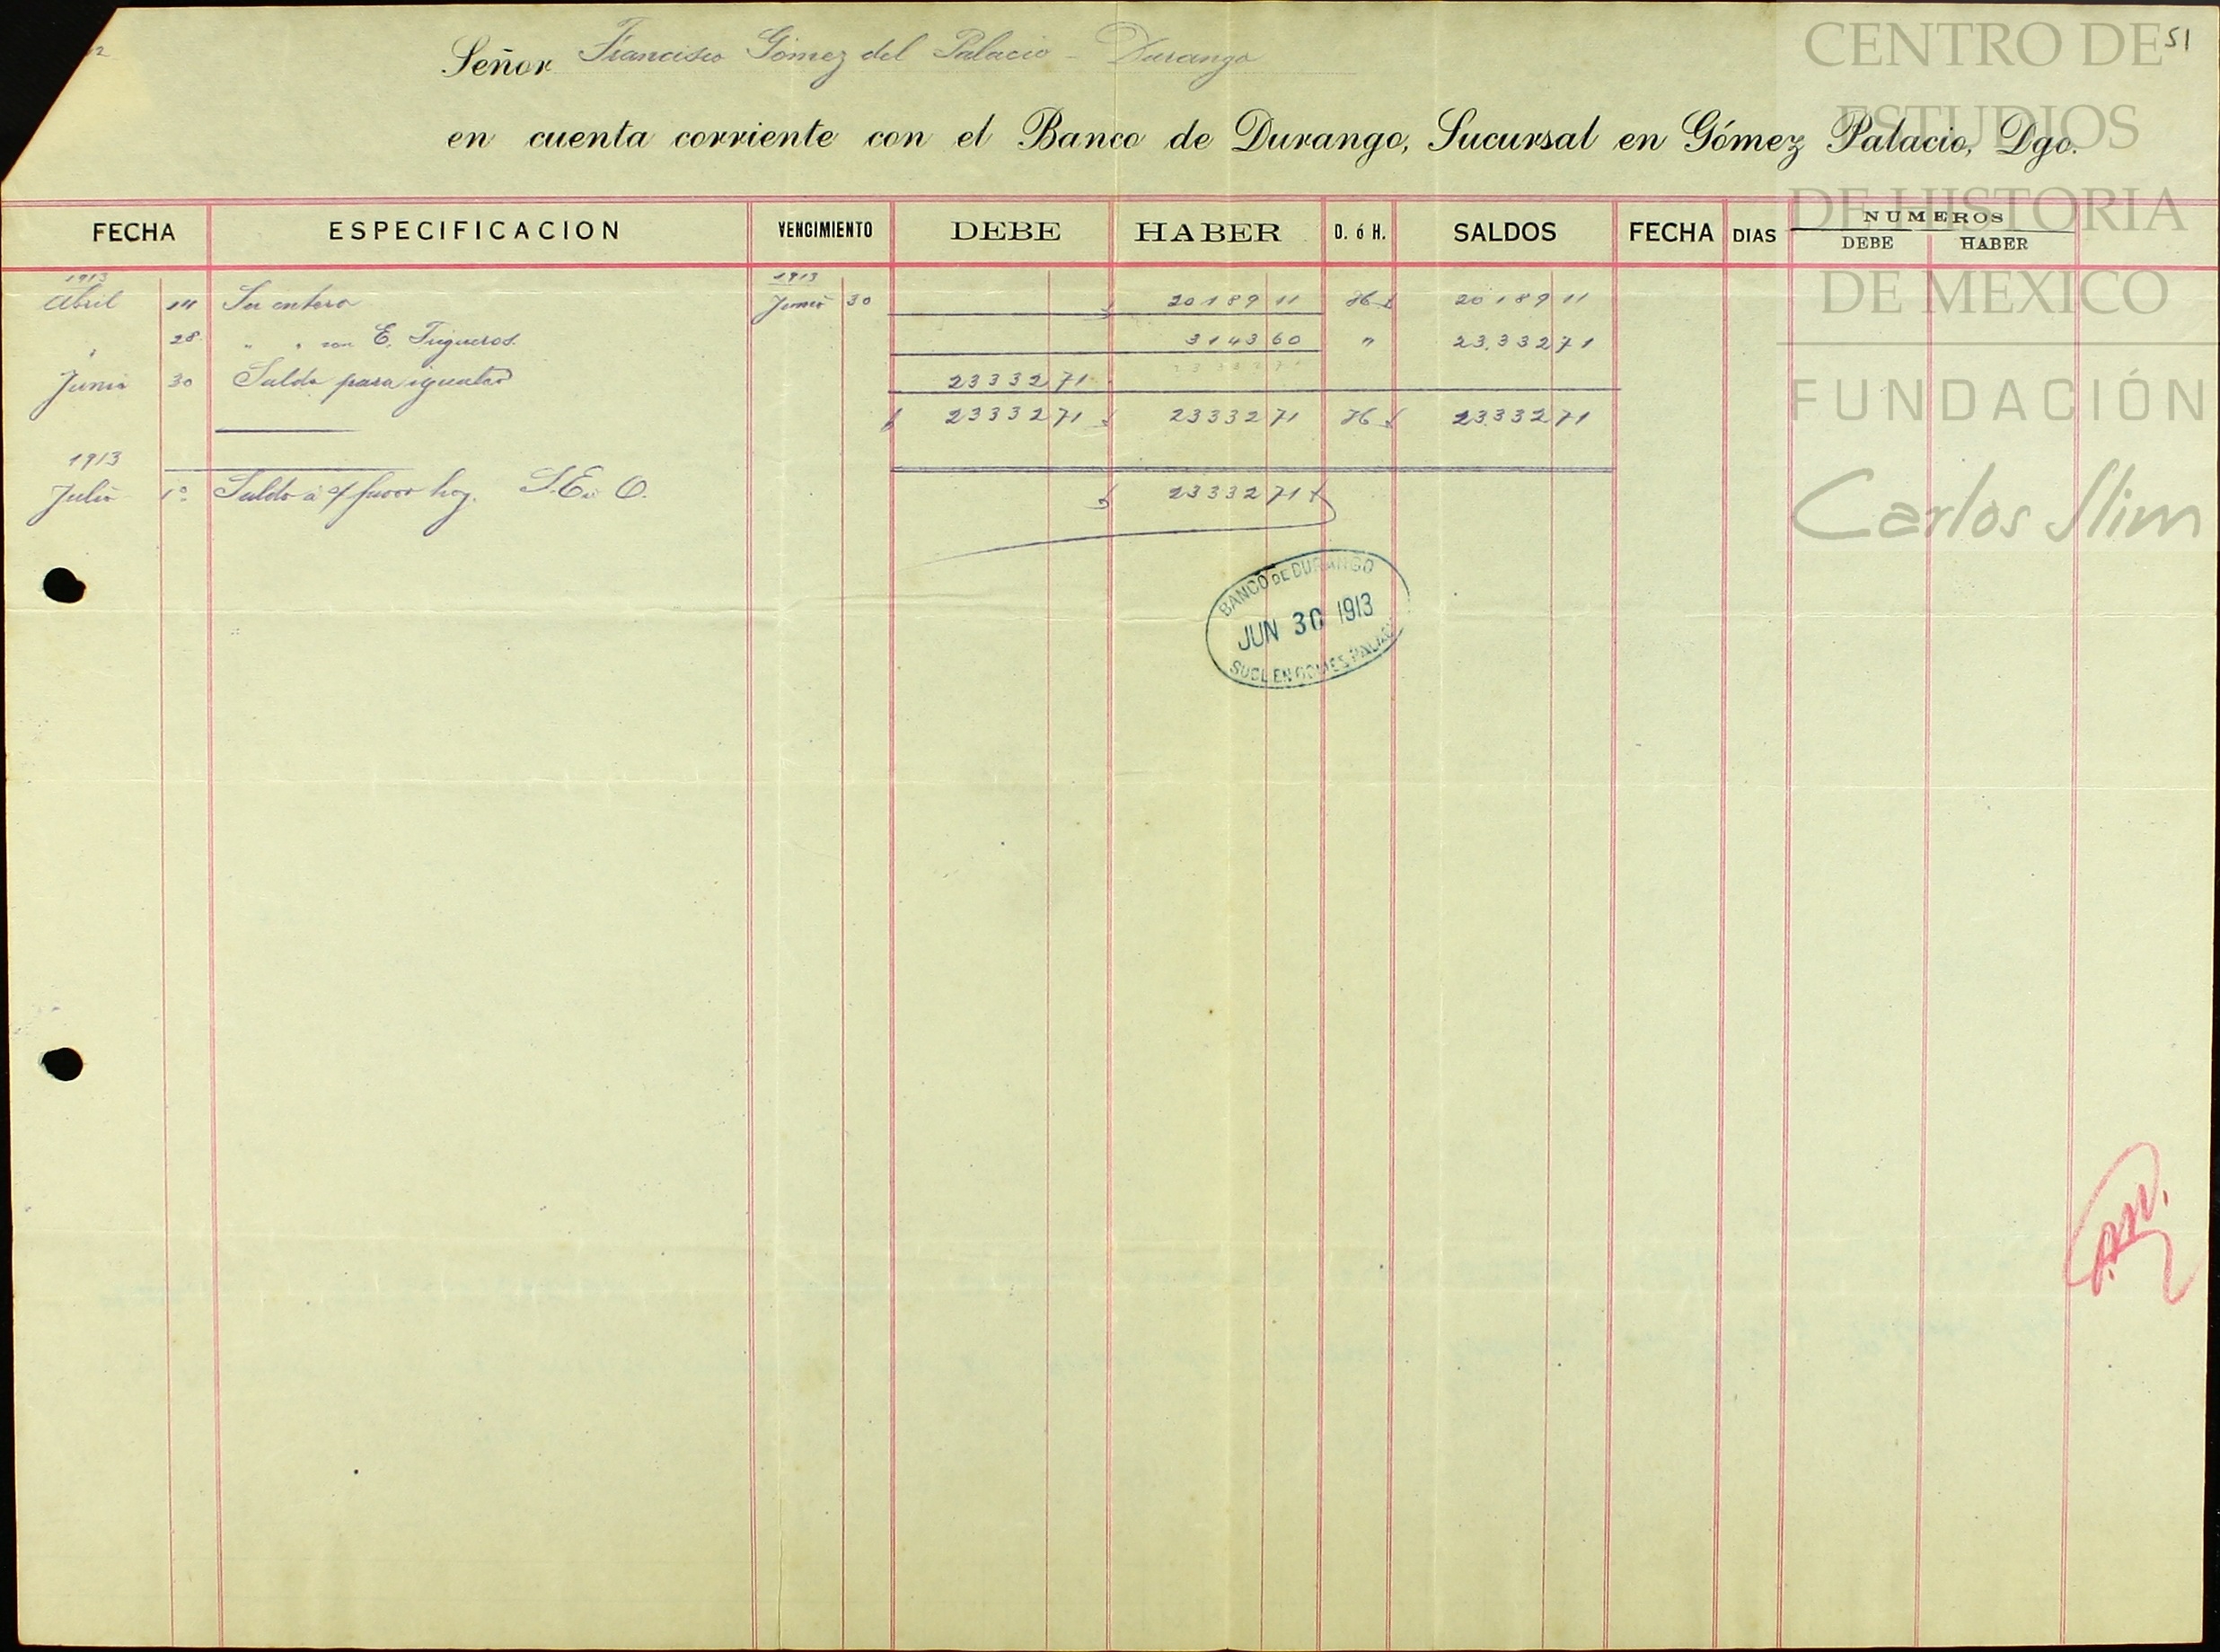 Señor Francisco Gómez del Palacio - Durango
51
en cuenta corriente con el Banco de Durango, Sucursal en Gómez Palacio, Dgo.
FECHA ESPECIFICACION VENCIMIENTO DEBE HABER D. ó H. SALDOS FECHA DIAS NUMEROS
DEBE HABER
1913 1913
Abril Su entero Junio 30 $ 20189 11 H $ 20189 11
" 28 " " con E. 3143 60 " 23,332 71
Junio 30 Saldo para igualar 23332 71
$ 23332 71 $ 23332 71 H $ 23.332 71
1913
Julio 1º Saldo á s/ favor hoy. S.E. ú O. $ 23332 71
BANCO DE DURANGO
JUN 30 1913
SUCL EN GOMES PALACIO
CENTRO DE
ESTUDIOS
DE HISTORIA
DE MEXICO
FUNDACIÓN
Carlos Slim